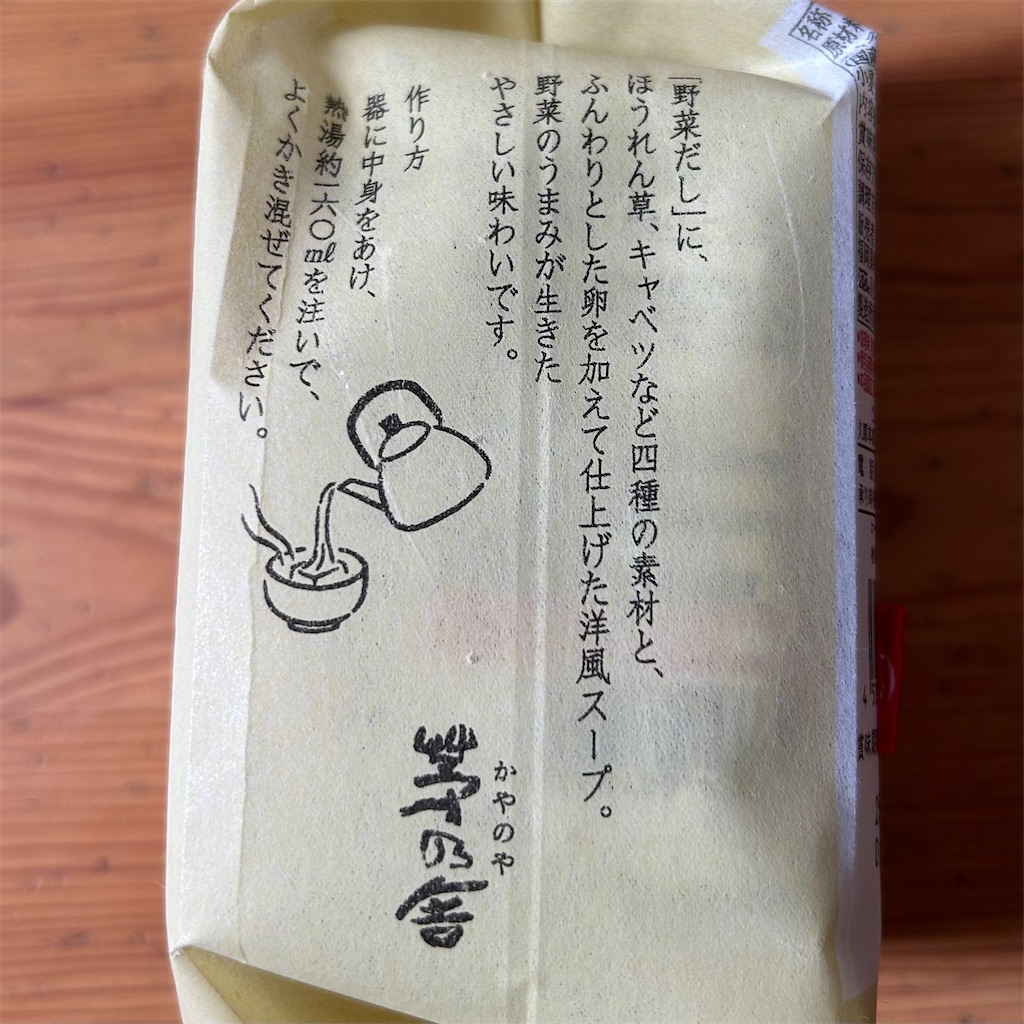 「野菜だし」に、
ほうれん草、キャベツなど四種の素材と、
ふんわりとした卵を加えて仕上げた洋風スープ。
野菜のうまみが生きた
やさしい味わいです。
作り方
器に中身をあけ、
熱湯約一六〇mlを注いで、
よくかき混ぜてください。
かやのや
茅乃舎
名称
原材料